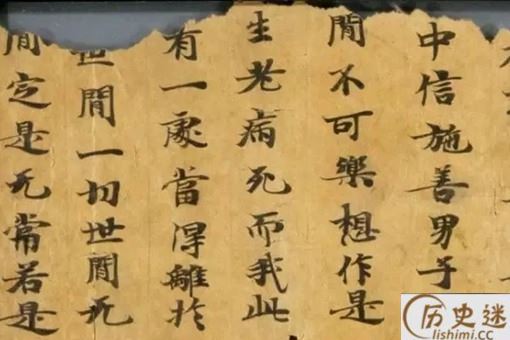 中信施善男子
間不可樂想作是
生老病死而我此
有一處當淂離扵
世間一切世間无
間定是无常若是
历史迷
lishimi.cc